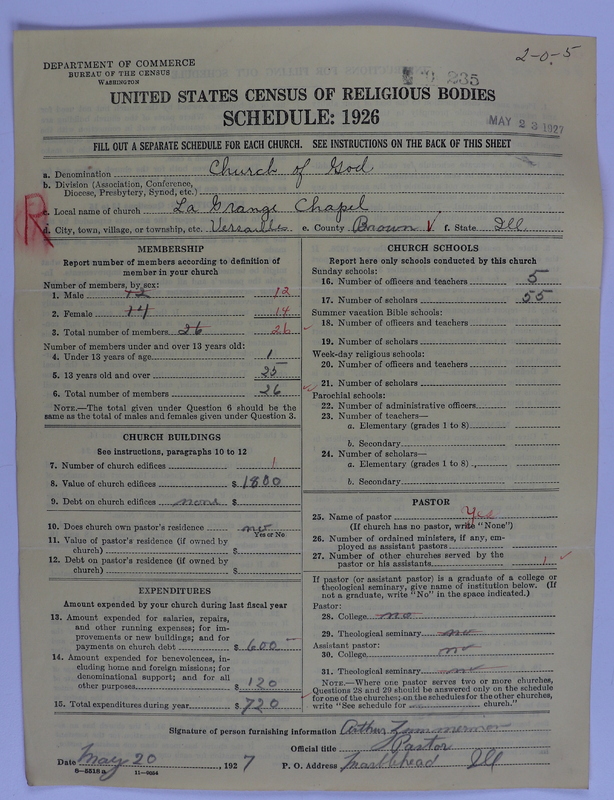 2-0-5
DEPARTMENT OF COMMERCE
BUREAU OF THE CENSUS
WASHINGTON
235
UNITED STATES CENSUS OF RELIGIOUS BODIES
SCHEDULE: 1926
MAY 23 1927
FILL OUT A SEPARATE SCHEDULE FOR EACH CHURCH. SEE INSTRUCTIONS ON THE BACK OF THIS SHEET
a. Denomination Church of God
b. Division (Association, Conference,
Diocese, Presbytery, Synod, etc.)
R
c. Local name of church La Grange Chapel
d. City, town, village, or township, etc. Versailles e. County Brown f. State Ill.
MEMBERSHIP
Report number of members according to definition of
member in your church
Number of members, by sex:
1. Male 12 12
2. Female 14 14
3. Total number of members 26 26
Number of members under and over 13 years old:
4. Under 13 years of age 1
5. 13 years old and over 25
6. Total number of members 26
NOTE.—The total given under Question 6 should be
same as the total of males and females given under Question 3.
CHURCH BUILDINGS
See instructions, paragraphs 10 to 12
7. Number of church edifices 1
8. Value of church edifices $ 1800
9. Debt on church edifices none $
10. Does church own pastor's residence no
Yes or No
11. Value of pastor's residence (if owned by
church) $
12. Debt on pastor's residence (if owned by
church) $
EXPENDITURES
Amount expended by your church during last fiscal year
13. Amount expended for salaries, repairs,
and other running expenses; for im-
provements or new buildings; and for
payments on church debt $ 600
14. Amount expended for benevolences, in-
cluding home and foreign missions; for
denominational support; and for all
other purposes $ 120
15. Total expenditures during year $ 720
CHURCH SCHOOLS
Report here only schools conducted by this church
Sunday schools:
16. Number of officers and teachers 5
17. Number of scholars 55
Summer vacation Bible schools:
18. Number of officers and teachers
19. Number of scholars
Week-day religious schools:
20. Number of officers and teachers
21. Number of scholars
Parochial schools:
22. Number of administrative officers
23. Number of teachers—
a. Elementary (grades 1 to 8)
b. Secondary
24. Number of scholars—
a. Elementary (grades 1 to 8)
b. Secondary
PASTOR
25. Name of pastor Yes
(If church has no pastor, write "None")
26. Number of ordained ministers, if any, em-
ployed as assistant pastors
27. Number of other churches served by the
pastor or his assistants 1
If pastor (or assistant pastor) is a graduate of a college or
theological seminary, give name of institution below. (If
not a graduate, write "No" in the space indicated.)
Pastor:
28. College no
29. Theological seminary no
Assistant pastor:
30. College no
31. Theological seminary no
NOTE.—Where one pastor serves two or more churches,
Questions 28 and 29 should be answered only on the schedule
for one of the churches; on the schedules for the other churches,
write "See schedule for church."
Signature of person furnishing information Arthur Zimmerman
Official title Pastor
Date May 20 1927 P. O. Address Marblehead Ill
8-5518a 11-9054